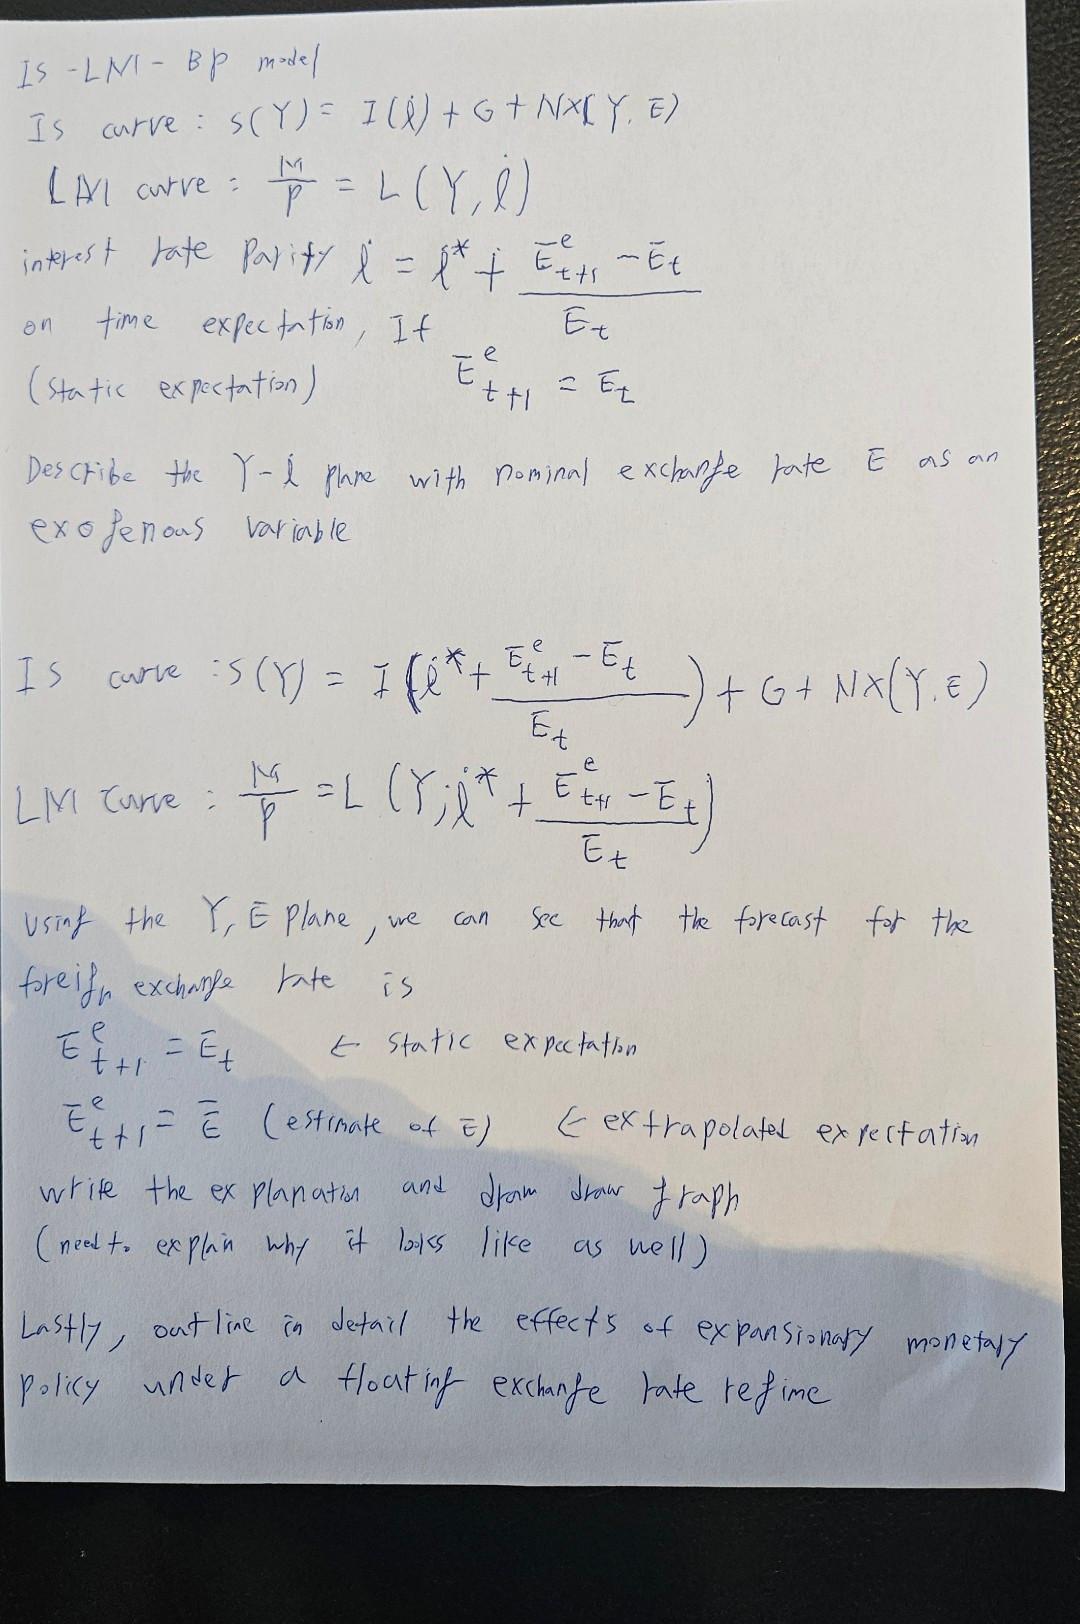 IS - LM - BP model
IS curve : S(Y) = I(i) + G + NX(Y, E)
LM curve : M/P = L(Y, i)
interest rate Parity i = i* + (E^e_{t+1} - E_t) / E_t
on time expectation, If E^e_{t+1} = E_t
(static expectation)
Describe the Y-i plane with nominal exchange rate E as an
exogenous variable
IS curve : S(Y) = I(i* + (E^e_{t+1} - E_t) / E_t) + G + NX(Y, E)
LM curve : M/P = L(Y, i* + (E^e_{t+1} - E_t) / E_t)
Using the Y, E plane, we can see that the forecast for the
foreign exchange rate is
E^e_{t+1} = E_t ← static expectation
E^e_{t+1} = Ē (estimate of E) ← extrapolated expectation
write the explanation and draw graph
(need to explain why it looks like as well)
Lastly, outline in detail the effects of expansionary monetary
policy under a floating exchange rate regime